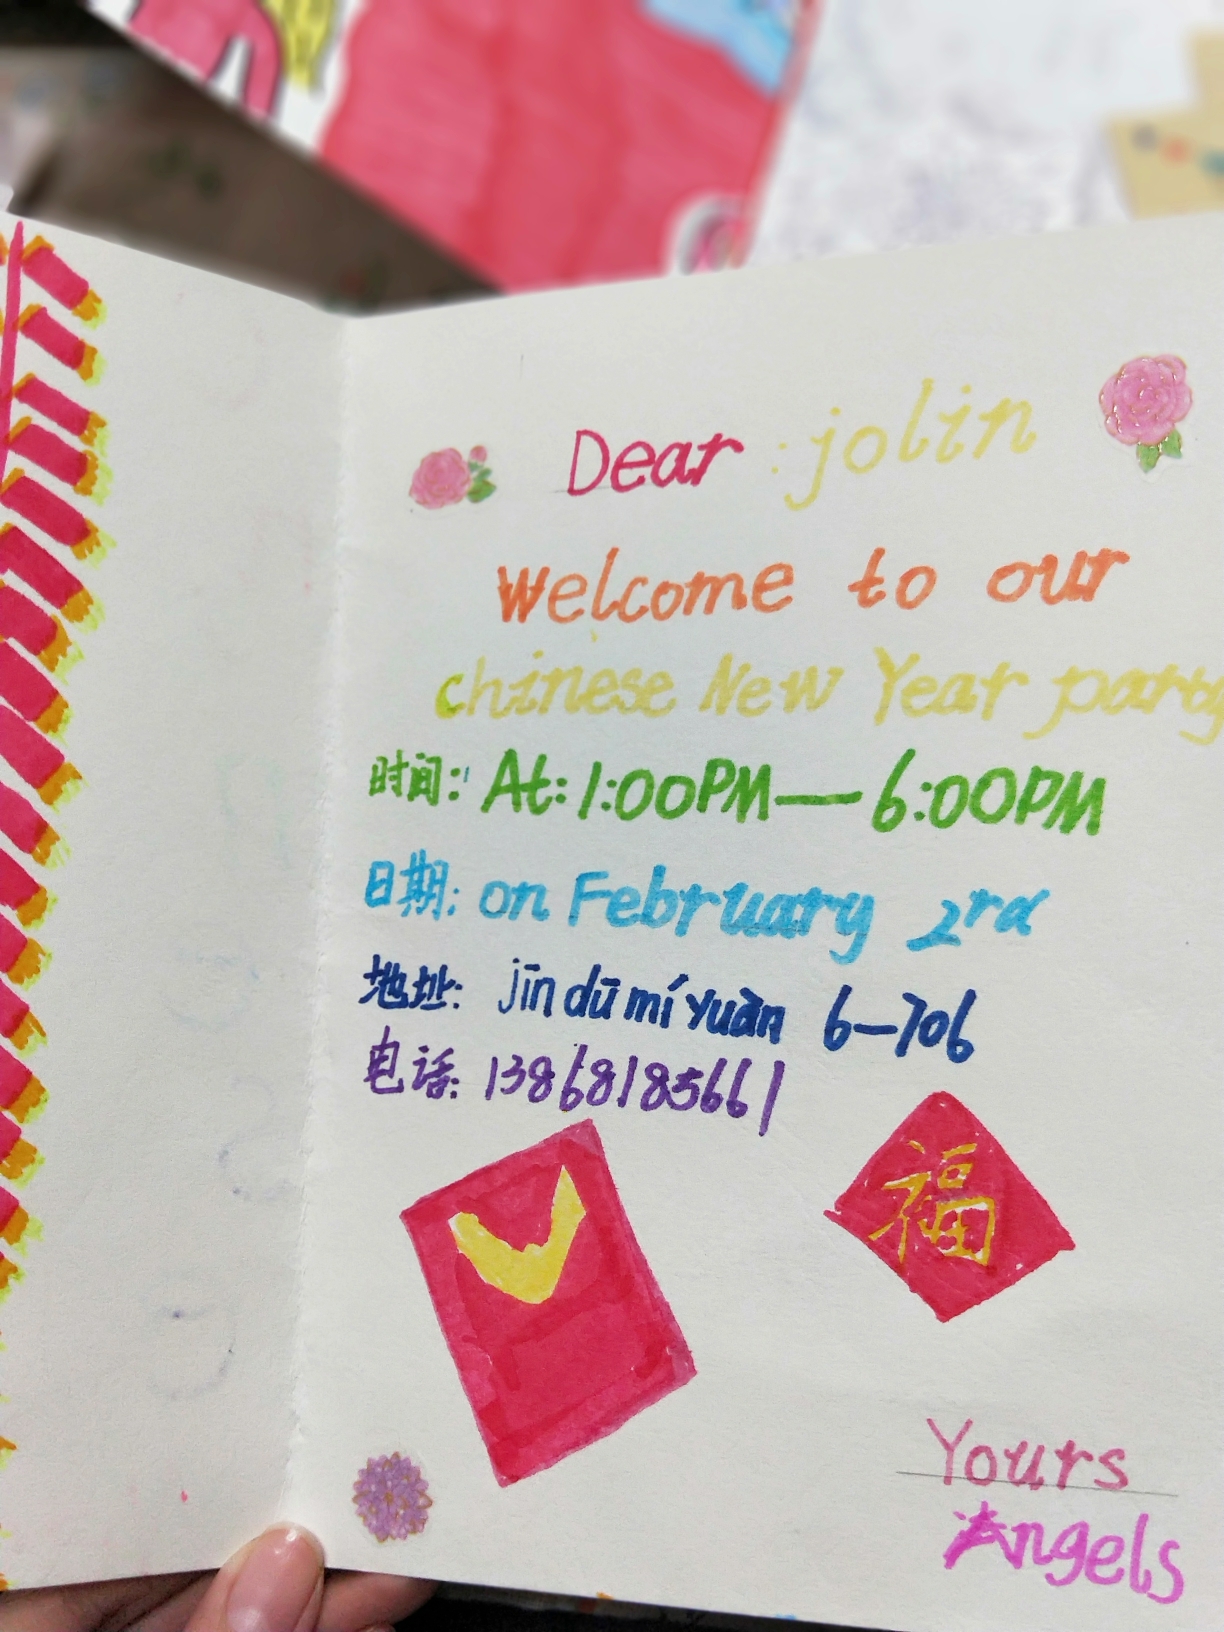 Dear : jolin
Welcome to our
chinese New Year party
时间: At: 1:00PM—6:00PM
日期: on February 2rd
地址: jīn dū mí yuàn 6-706
电话: 13868185661
福
Yours
Angels